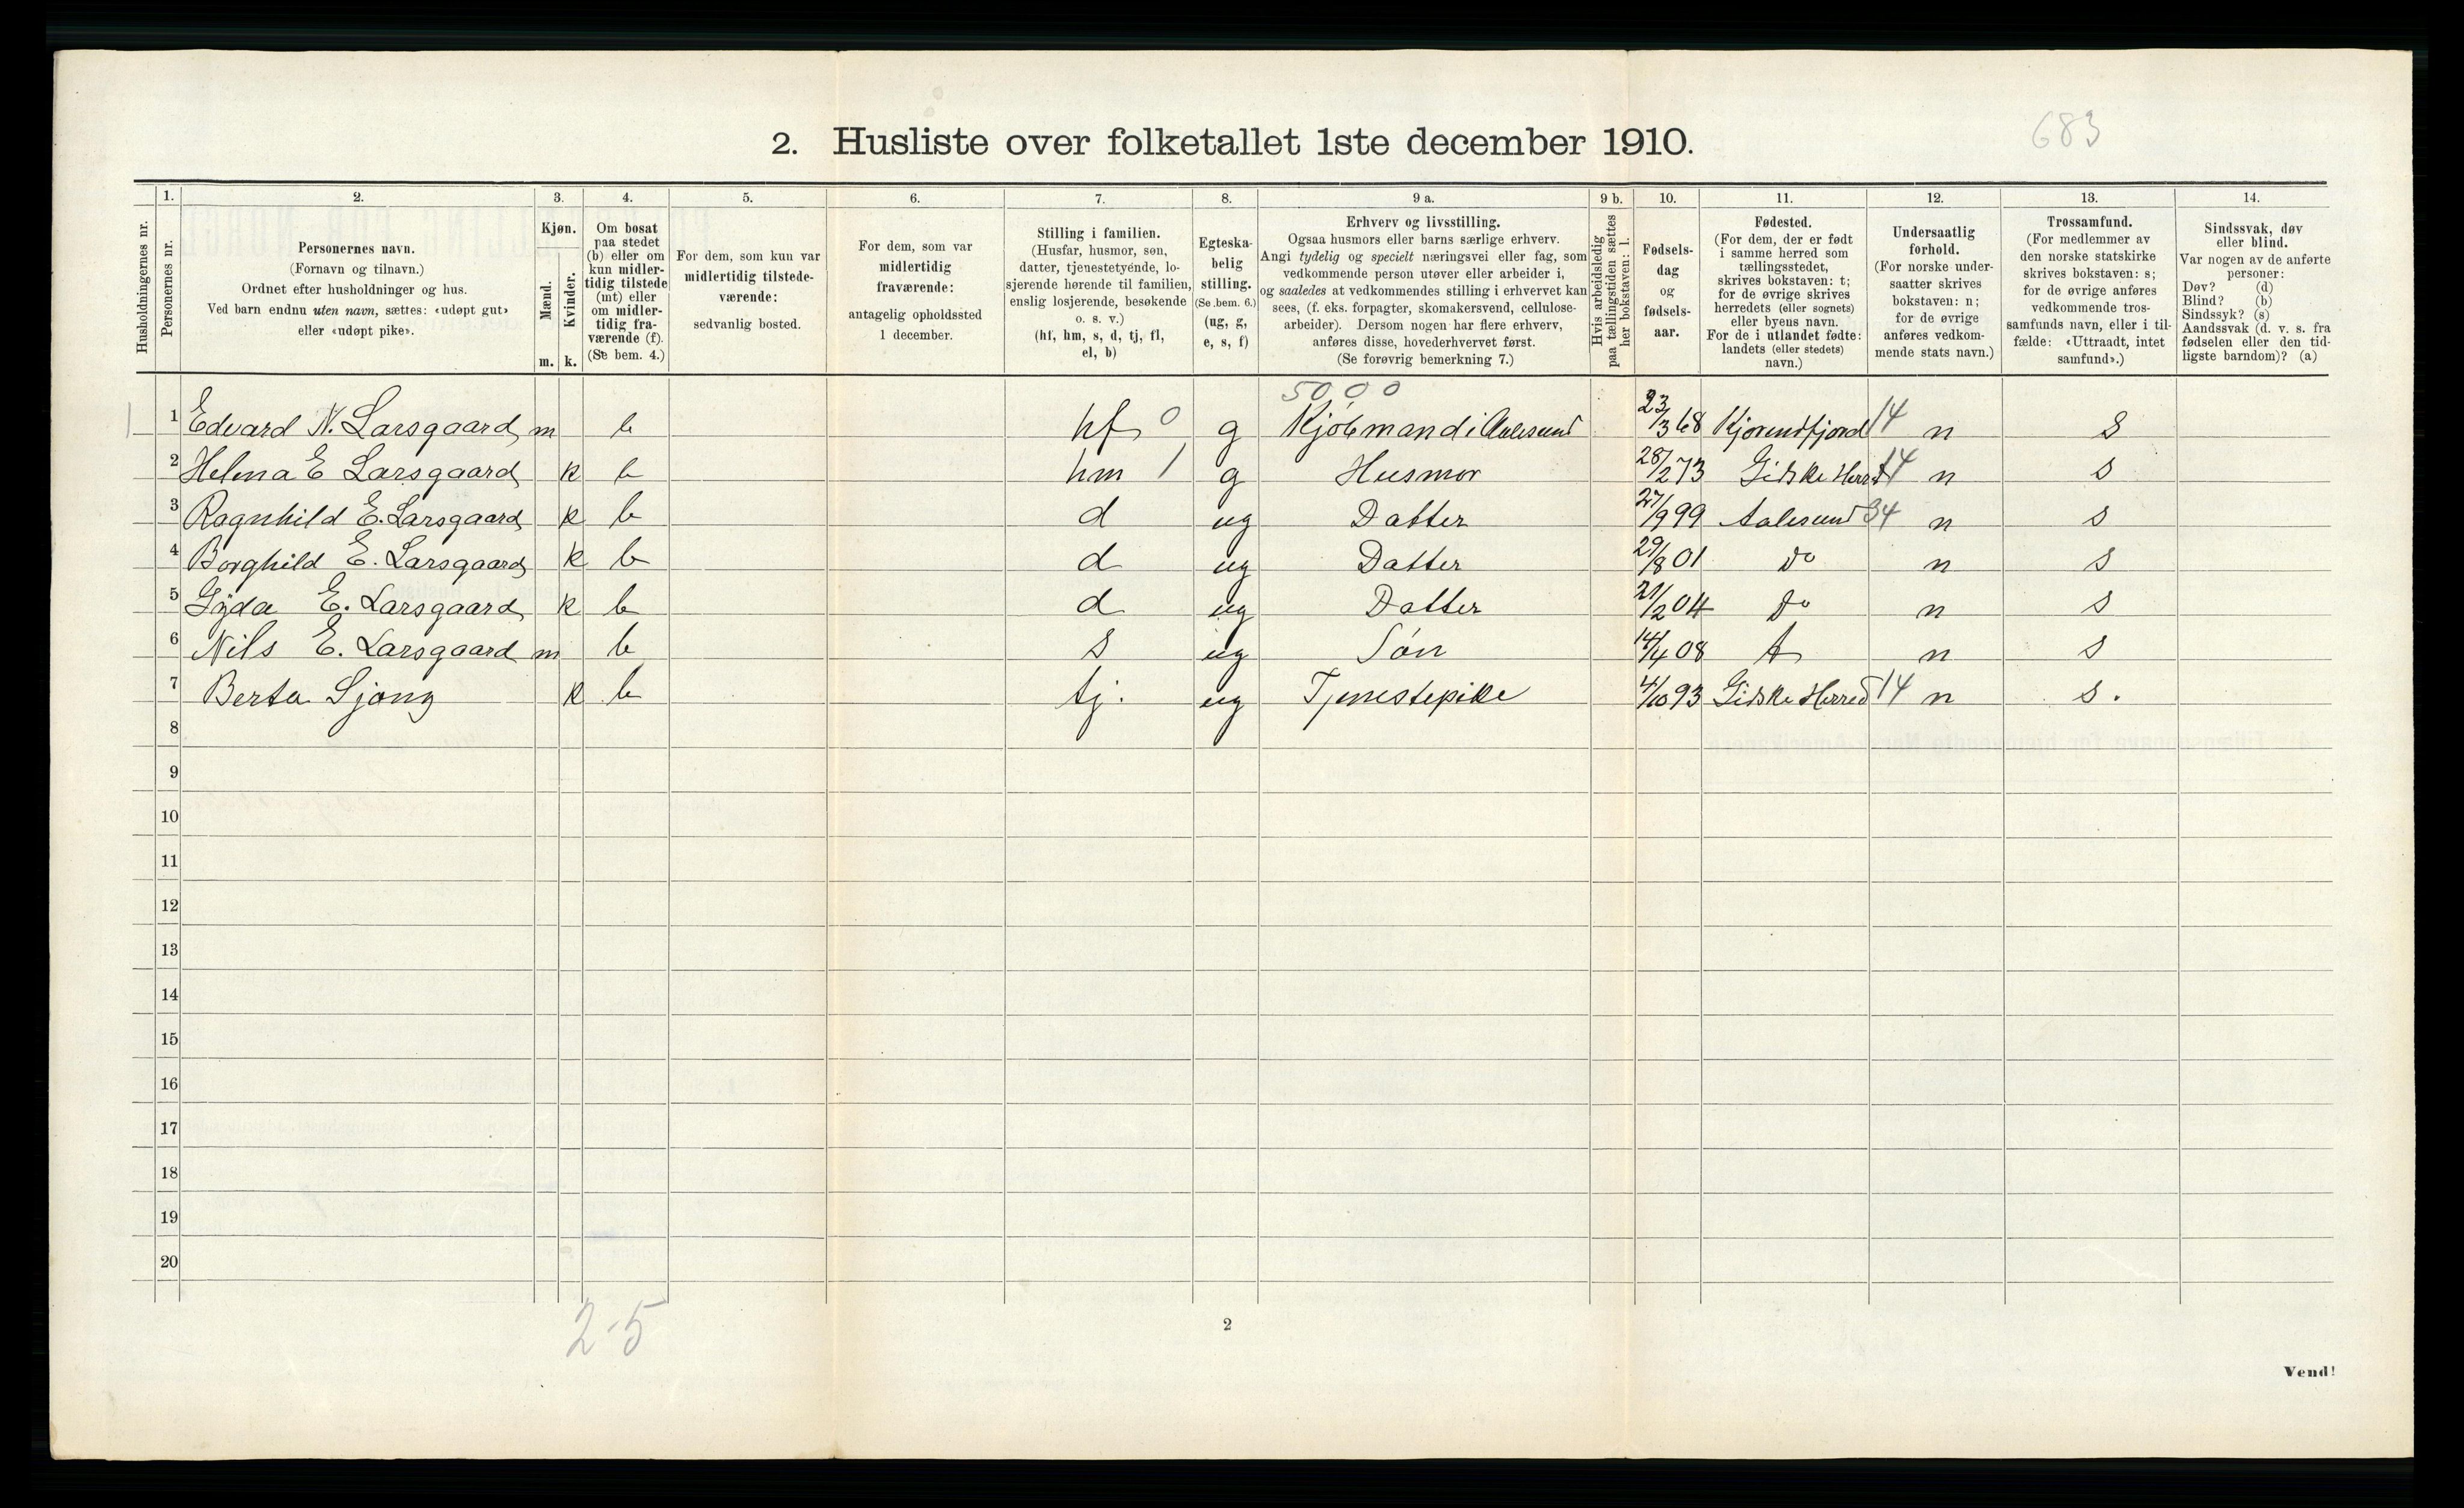 683
2. Husliste over folketallet 1ste december 1910.
Husholdningernes nr.
1.
Personernes nr.
2.
Personernes navn.
(Fornavn og tilnavn.)
Ordnet efter husholdninger og hus.
Ved barn endnu uten navn, sættes: «udøpt gut»
eller «udøpt pike».
3.
Kjøn.
Mænd.
Kvinder.
m. k.
4.
Om bosat
paa stedet
(b) eller om
kun midler-
tidig tilstede
(mt) eller
om midler-
tidig fra-
værende (f).
(Se bem. 4.)
5.
For dem, som kun var
midlertidig tilstede-
værende:
sedvanlig bosted.
6.
For dem, som var
midlertidig
fraværende:
antagelig opholdssted
1 december.
7.
Stilling i familien.
(Husfar, husmor, søn,
datter, tjenestetyende, lo-
sjerende hørende til familien,
enslig losjerende, besøkende
o. s. v.)
(hf, hm, s, d, tj, fl,
el, b)
8.
Egteska-
belig
stilling.
(Se bem. 6.)
(ug, g,
e, s, f)
9 a.
Erhverv og livsstilling.
Ogsaa husmors eller barns særlige erhverv.
Angi tydelig og specielt næringsvei eller fag, som
vedkommende person utøver eller arbeider i,
og saaledes at vedkommendes stilling i erhvervet kan
sees, (f. eks. forpagter, skomakersvend, cellulose-
arbeider). Dersom nogen har flere erhverv,
anføres disse, hovederhvervet først.
(Se forøvrig bemerkning 7.)
9 b.
Hvis arbeidsledig
paa tællingstiden sættes
her bokstaven: l.
10.
Fødsels-
dag
og
fødsels-
aar.
11.
Fødested.
(For dem, der er født
i samme herred som
tællingsstedet,
skrives bokstaven: t;
for de øvrige skrives
herredets (eller sognets)
eller byens navn.
For de i utlandet fødte:
landets (eller stedets)
navn.)
12.
Undersaatlig
forhold.
(For norske under-
saatter skrives
bokstaven: n;
for de øvrige
anføres vedkom-
mende stats navn.)
13.
Trossamfund.
(For medlemmer av
den norske statskirke
skrives bokstaven: s;
for de øvrige anføres
vedkommende tros-
samfunds navn, eller i til-
fælde: «Uttraadt, intet
samfund».)
14.
Sindssvak, døv
eller blind.
Var nogen av de anførte
personer:
Døv? (d)
Blind? (b)
Sindssyk? (s)
Aandssvak (d. v. s. fra
fødselen eller den tid-
ligste barndom)? (a)
5000
1 1 Edvard N. Larsgaard m b hf 0 g Kjöbmand i Aalesund 23/3 68 Kjorundfjord 14 n s
2 Helena E Larsgaard k b hm 1 g Husmor 28/2 73 Giske Herred 14 n s
3 Ragnhild E. Larsgaard k b d ug Datter 27/9 99 Aalesund 34 n s
4 Borghild E. Larsgaard k b d ug Datter 29/8 01 do n s
5 Gyda E. Larsgaard k b d ug Datter 21/2 04 do n s
6 Nils E. Larsgaard m b s ug Sön 14/4 08 t n s
7 Berta Ljong k b tj. ug Tjenestepike 4/10 93 Giske Herred 14 n s.
8
9
10
11
12
13
14
15
16
17
18
19
20
2-5
2
Vend!